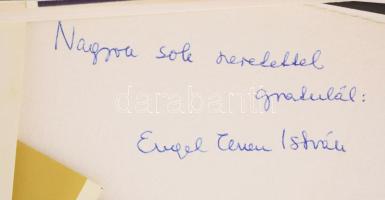 Nagyon sok szeretettel
gratulál:
Engel Tevan István
darabanth